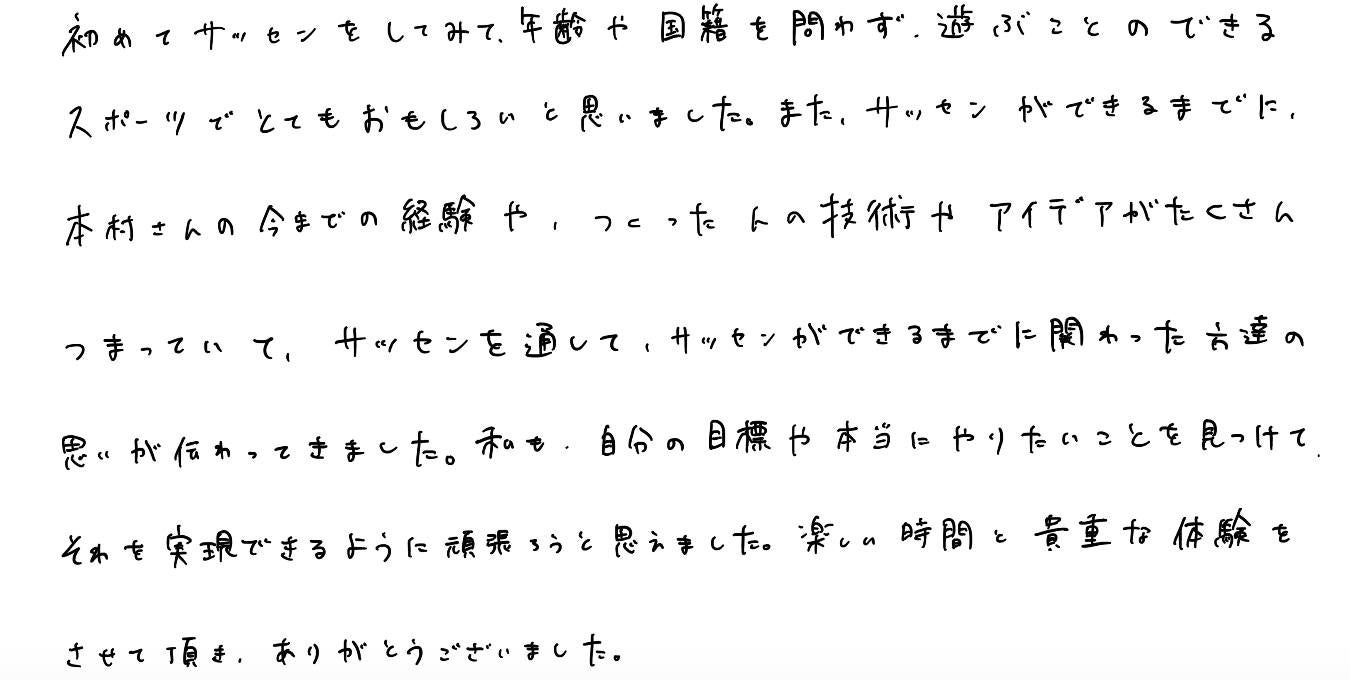 初めてサッセンをしてみて、年齢や国籍を問わず、遊ぶことのできる
スポーツでとてもおもしろいと思いました。また、サッセンができるまでに、
本村さんの今までの経験や、つくったんの技術やアイデアがたくさん
つまっていて、サッセンを通して、サッセンができるまでに関わった方達の
思いが伝わってきました。私も、自分の目標や本当にやりたいことを見つけて、
それを実現できるように頑張ろうと思えました。楽しい時間と貴重な体験を
させて頂き、ありがとうございました。